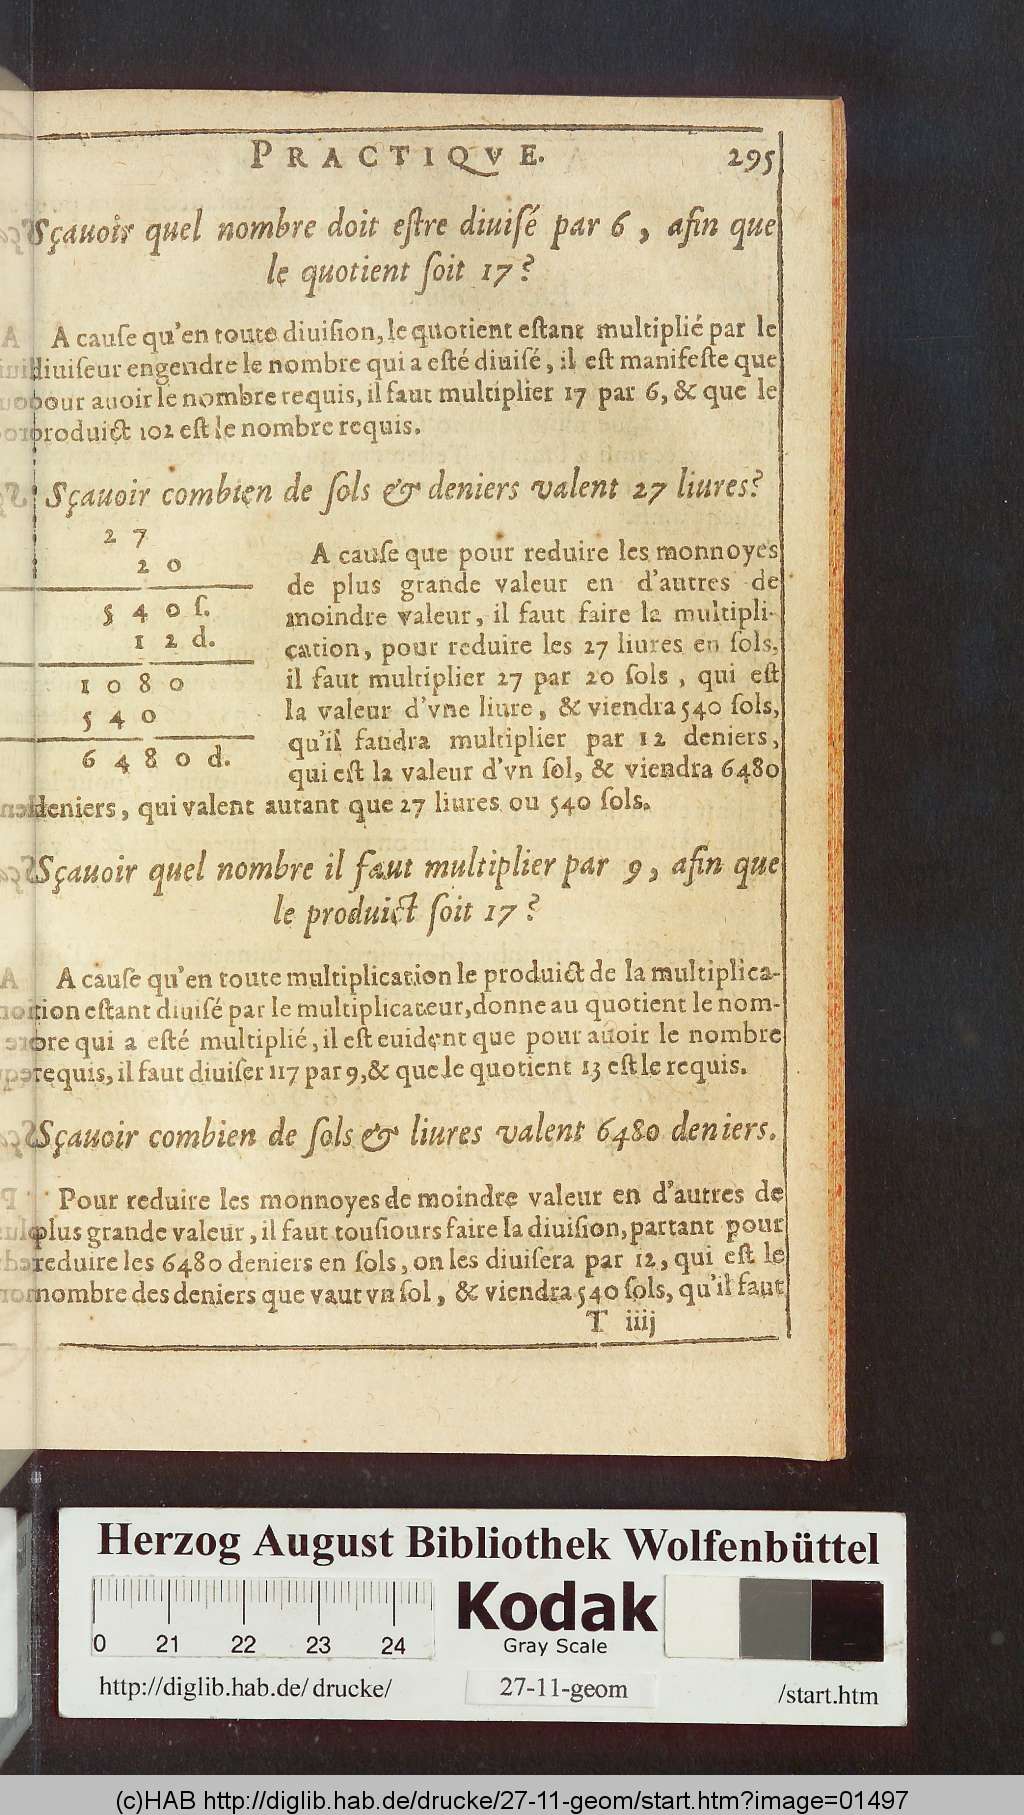 PRACTIQVE. 295
Sçauoir quel nombre doit eſtre diuiſé par 6, afin que
le quotient ſoit 17?
A cauſe qu'en toute diuiſion, le quotient eſtant multiplié par le
diuiſeur engendre le nombre qui a eſté diuiſé, il eſt manifeſte que
pour auoir le nombre requis, il faut multiplier 17 par 6, & que le
produict 102 eſt le nombre requis.
Sçauoir combien de ſols & deniers valent 27 liures?
2 7
2 0
5 4 0 ſ.
1 2 d.
1 0 8 0
5 4 0
6 4 8 0 d.
A cauſe que pour reduire les monnoyes
de plus grande valeur en d'autres de
moindre valeur, il faut faire la multipli-
cation, pour reduire les 27 liures en ſols,
il faut multiplier 27 par 20 ſols, qui eſt
la valeur d'vne liure, & viendra 540 ſols,
qu'il faudra multiplier par 12 deniers,
qui eſt la valeur d'vn ſol, & viendra 6480
deniers, qui valent autant que 27 liures ou 540 ſols.
Sçauoir quel nombre il faut multiplier par 9, afin que
le produict ſoit 17?
A cauſe qu'en toute multiplication le produict de la multiplica-
tion eſtant diuiſé par le multiplicateur, donne au quotient le nom-
bre qui a eſté multiplié, il eſt euident que pour auoir le nombre
requis, il faut diuiſer 117 par 9, & que le quotient 13 eſt le requis.
Sçauoir combien de ſols & liures valent 6480 deniers.
Pour reduire les monnoyes de moindre valeur en d'autres de
plus grande valeur, il faut touſiours faire la diuiſion, partant pour
reduire les 6480 deniers en ſols, on les diuiſera par 12, qui eſt le
nombre des deniers que vaut vn ſol, & viendra 540 ſols, qu'il faut
T iiij
Herzog August Bibliothek Wolfenbüttel
0 21 22 23 24
Kodak
Gray Scale
http://diglib.hab.de/drucke/ 27-11-geom /start.htm
(c)HAB http://diglib.hab.de/drucke/27-11-geom/start.htm?image=01497